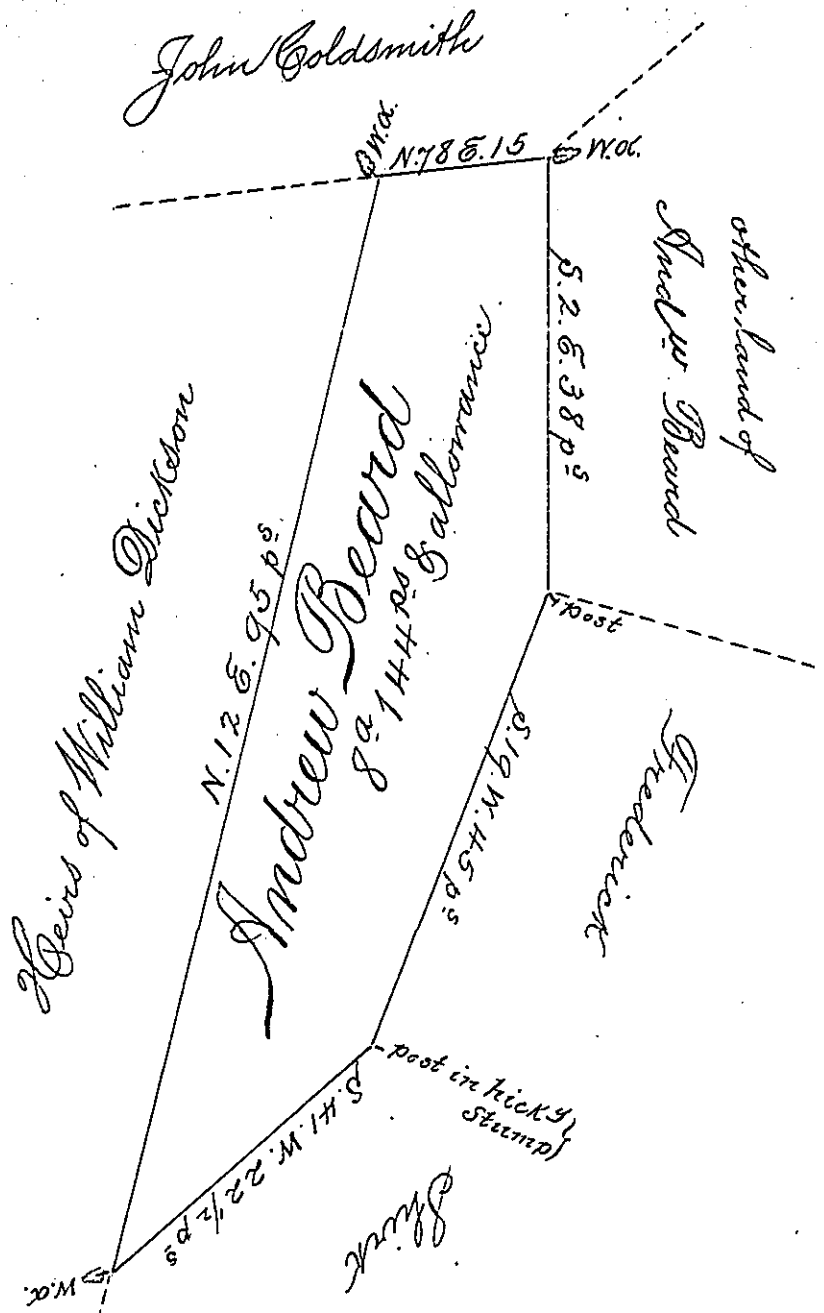 John Coldsmith
W.O.
N.78 E.15
W.O.
other land of
Andw. Beard
S.2.E.38 ps
post
Heirs of William Dickson
N.12 E. 95 ps.
Andrew Beard
8a 144 ps & allowance.
S.19.W.45 ps
Frederick
post in hicky
stump
S.41.W.22 1/2 ps
Shirk
W.O.